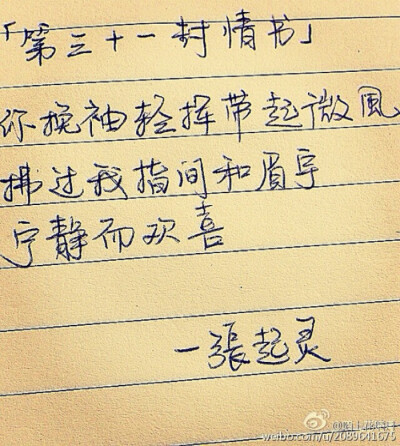 「第三十一封情书」
你挽袖轻挥带起微風
拂过我指间和眉宇
宁静而欢喜
一張起灵
weibo.com/u/2089641675